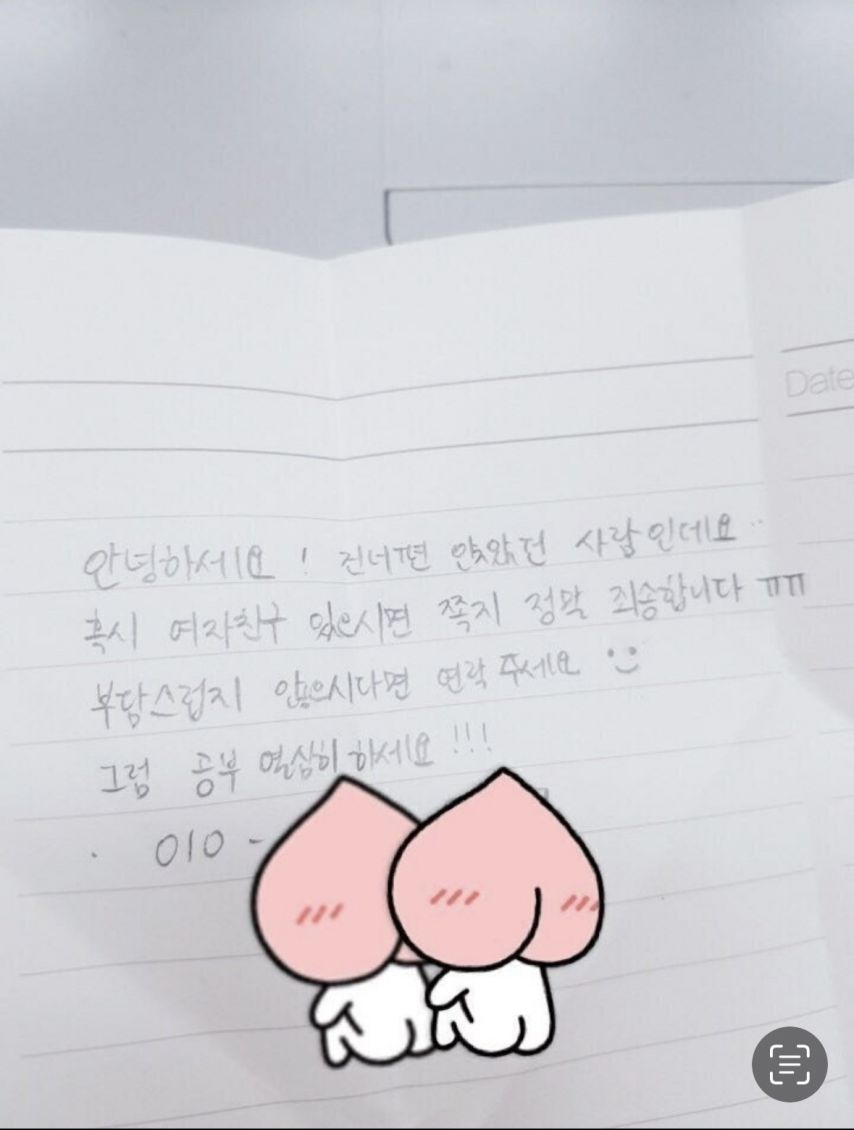 Date
안녕하세요! 건너편 앉았던 사람인데요..
혹시 여자친구 있으시면 쪽지 정말 죄송합니다 ㅠㅠ
부담스럽지 않으시다면 연락 주세요 :)
그럼 공부 열심히 하세요!!!
· 010 -